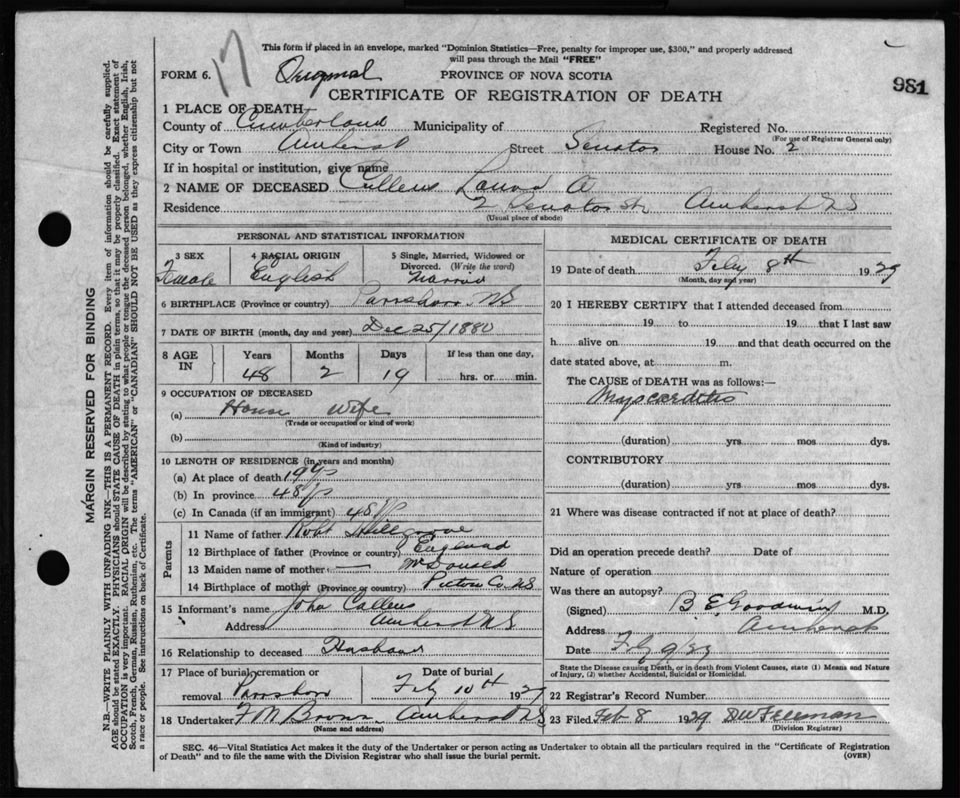 This form if placed in an envelope, marked "Dominion Statistics—Free, penalty for improper use, $300," and properly addressed
will pass through the Mail "FREE"
17
FORM 6. Original PROVINCE OF NOVA SCOTIA
981
CERTIFICATE OF REGISTRATION OF DEATH
1 PLACE OF DEATH
County of Cumberland Municipality of Registered No.
(For use of Registrar General only)
City or Town Amherst Street Senator House No. 2
If in hospital or institution, give name
2 NAME OF DECEASED Cullens A
Residence 2 Senator St Amherst NS
(Usual place of abode)
PERSONAL AND STATISTICAL INFORMATION
3 SEX 4 RACIAL ORIGIN 5 Single, Married, Widowed or
Divorced. (Write the word)
Female English Married
6 BIRTHPLACE (Province or country) Parrsboro NS
7 DATE OF BIRTH (month, day and year) Dec 25/1880
8 AGE IN Years Months Days If less than one day,
48 2 19 hrs. or min.
9 OCCUPATION OF DECEASED
(a) House wife
(Trade or occupation or kind of work)
(b)
(Kind of industry)
10 LENGTH OF RESIDENCE (in years and months)
(a) At place of death 19 yrs
(b) In province 48 yrs
(c) In Canada (if an immigrant) 48 yrs
Parents
11 Name of father Robt
12 Birthplace of father (Province or country) England
13 Maiden name of mother — McDonald
14 Birthplace of mother (Province or country) Pictou Co. NS
15 Informant's name John Cullens
Address Amherst NS
16 Relationship to deceased Husband
17 Place of burial, cremation or Date of burial
removal Parrsboro Feby 10th 1929
18 Undertaker F M Brown Amherst NS
(Name and address)
MEDICAL CERTIFICATE OF DEATH
19 Date of death Feby 8th 1929
(Month, day and year)
20 I HEREBY CERTIFY that I attended deceased from
19 to 19 that I last saw
h alive on 19 and that death occurred on the
date stated above, at m.
The CAUSE of DEATH was as follows:—
Myocarditis
(duration) yrs mos dys.
CONTRIBUTORY
(duration) yrs mos dys.
21 Where was disease contracted if not at place of death?
Did an operation precede death? Date of
Nature of operation
Was there an autopsy?
(Signed) B E Goodwin M.D.
Address Amherst
Date Feby 9/29
State the Disease causing Death, or in death from Violent Causes, state (1) Means and Nature
of Injury, (2) whether Accidental, Suicidal or Homicidal.
22 Registrar's Record Number
23 Filed Feb 8 1929 Freeman
(Division Registrar)
SEC. 46—Vital Statistics Act makes it the duty of the Undertaker or person acting as Undertaker to obtain all the particulars required in the "Certificate of Registration
of Death" and to file the same with the Division Registrar who shall issue the burial permit.
(OVER)
MARGIN RESERVED FOR BINDING
N.B.—WRITE PLAINLY WITH UNFADING INK—THIS IS A PERMANENT RECORD. Every item of information should be carefully supplied.
AGE should be stated EXACTLY. PHYSICIANS should STATE CAUSE OF DEATH in plain terms, so that it may be properly classified. Exact statement of
OCCUPATION is very important. RACIAL ORIGIN will be described by stating to what people or tongue the deceased person belonged, whether English, Irish,
Scotch, French, German, Russian, Ruthenian, etc. The terms "AMERICAN" or "CANADIAN" SHOULD NOT BE USED as they express citizenship but not
a race or people. See instructions on back of Certificate.